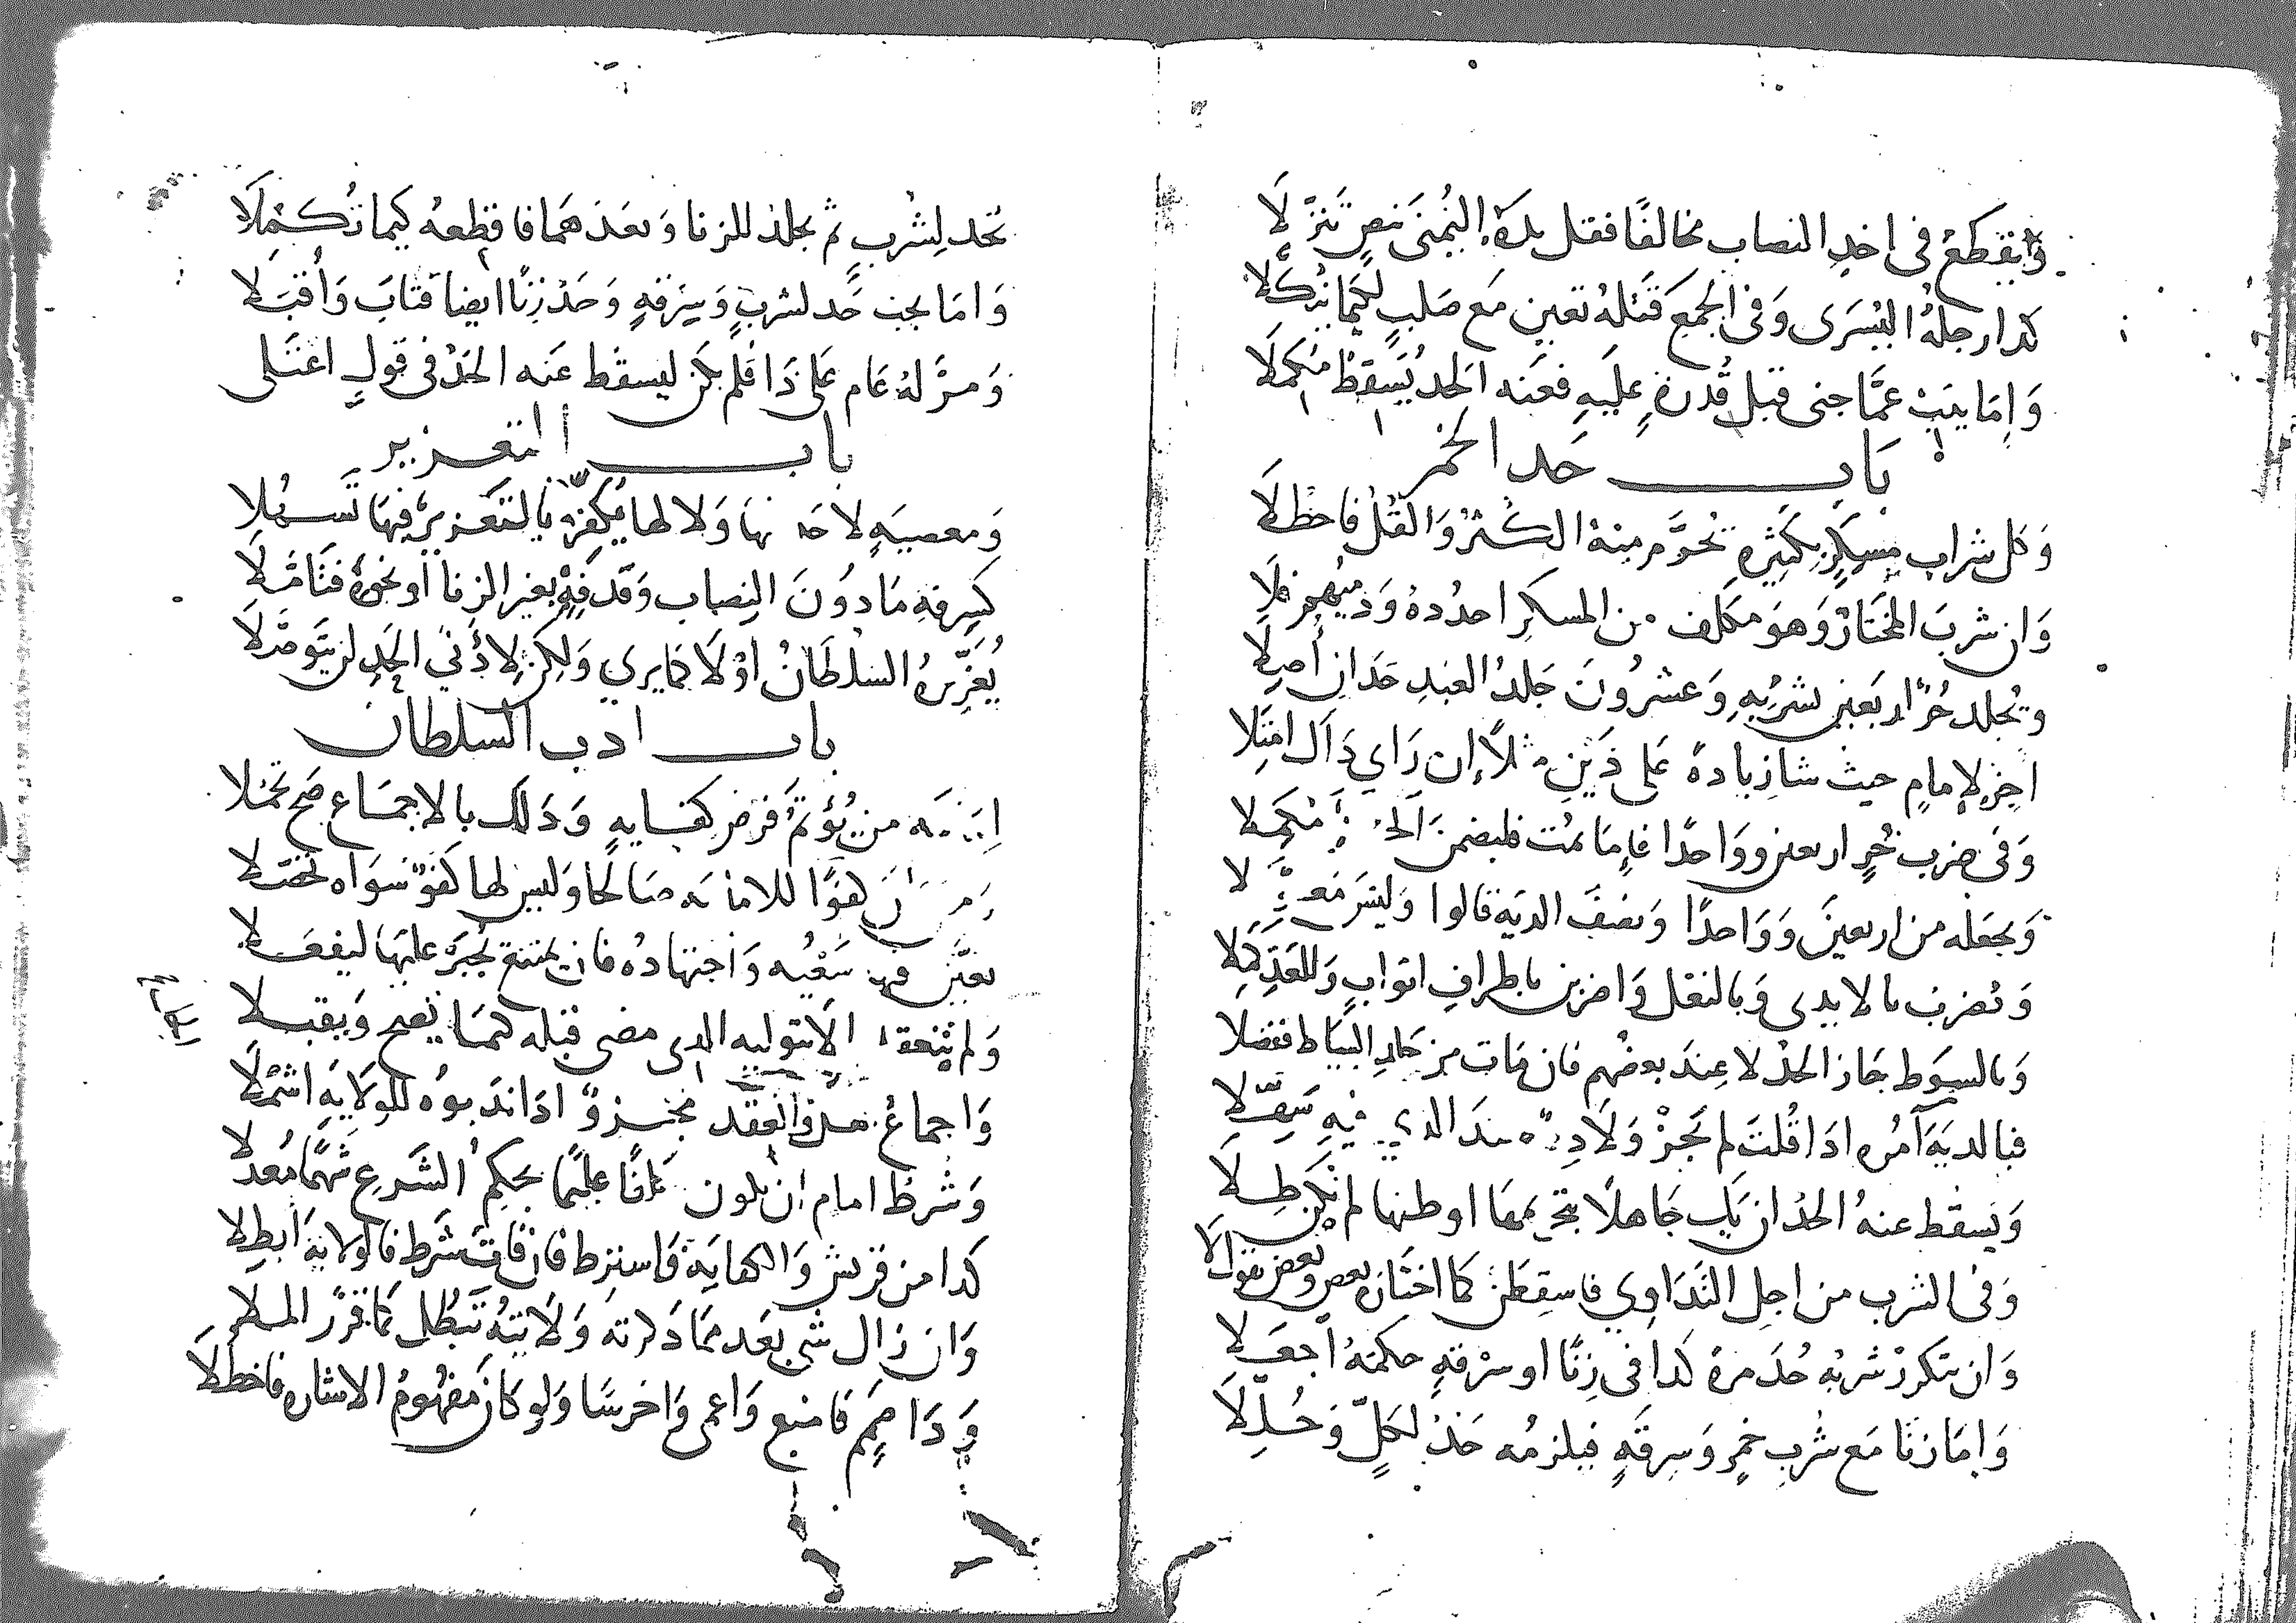 وَيقطعُ في اخذِ النصاب مخالفًا فقل يدَهُ اليُمنَى بنصٍ تنزَّلَا
كذا رجلهُ اليُسرَى وَفي الجمع قَتلهُ تعين مَع صَلبٍ لكيمَا ينكلا
وَإمَا يتب عمَّا جنى قبل قُدرةٍ عليَهِ فعَنه الحد يُسقط مكمَلَا
بَاب حَد الخمر
وَكل شرابٍ مسكرٍ بكثيره تحرَّم منهُ الكثرُ وَالقُلُّ فاحظلَا
وَان شربَ المختارُ وَهوَ مكلف من المسكرِ احدُدهُ
ويُجلد حُرٌّ اربَعين بشربهِ وَعشرُونَ جَلدُ العَبدِ حَدًا
اجز لإمامٍ حيث شا زيادةً عَلى ذَينِ مثلًا إن رَاي ذَاك امثلا
وَفي ضرب حُرٍ اربعين ووَاحدًا فإمَا يمُت فليضمن
وَيجعَله من اربعينَ وَوَاحدًا وَنصفَ الديَه قالوا وَليسَ
وَتضرب بالايدي وَبالنعَل وَاضربن باطرافِ اثوابٍ
وَبالسوط جَاز الحدُّ لا عِندَ بعضهم فان مَات من جلدِ السياط ففصّلا
فبالديَة آمُره اذا قُلتَ لم يَجُزْ وَلَا
وَيَسقُط عنهُ الحدُ ان يَك جَاهلًا بتحريمهَا او ظنها لم تكن طلَا
وَفي الشرب من اجلِ التدَاوِي فاسقِطَن كما اختَاره بعض وبعض يقول لا
وَان يتكررْ شربُه حُدَ مرةً كذا في زِنًا او سرقةٍ حكمهُ اجعَلا
وَإمَا زنَا مَع شُربِ خمرٍ وَسرقَةٍ فيلزمُه حَدٌّ لكلٍّ
تحد لشربٍ ثم يجلد للزنا وَبعَدَهمَا فاقطعهُ كيمَا تُكمّلَا
وَامَا يجب حَد لشربٍ وَسِرقةٍ وَحَد زِنًا ايضا فتابَ وَأقبَلا
وَمرَّ لهُ عَام عَلى ذَا فلم يكن ليسقُط عَنه الحَدُّ في قولٍ اعتَلى
باب التعزير
وَمعصيَةٍ لا حَد فيها وَلا لها يُكفِّرْ بالتَعزيرِ فيهَا تَسهُلا
كسِرقةِ مَا دوُنَ النِصاب وَقذفةٍ بغير الزنا أو نحوهُ فتَأمَّلَا
يُعَزِّرهُ السُلطَانُ اوْ لَا كمَا يري وَلكن لادْني الحَدِ لن يتَوصَّلَا
باب ادب السلطان
من يُؤتَمُّ فرض كفايةٍ وَذَلك بالاجمَاع صَح تحمّلا
كفؤًا للامَانَه صَالحًا وَليس لها كفؤٌ سوَاه تحصّلا
تعيّن سَعْيُه وَاجتهادُه فان يمتنع يُجبَر عليَها ليفعَلا
وَلم تنعقد الّا بتوليه الذي مضى قبله كيمَا يَصح وَيقبلا
وَاجماعُ هل العَقد اذا ندَبوُه للولَايَهِ اشمُلَا
وَشرطُ امام ان يكون عليمًا بحكمِ الشَرعِ شَهمًا مُعَدّلا
كذا من قريش وَالكفايَة فاشترط فان فَاتَ شرط فالولَايَة ابطِلا
وَان زال شي بعَد ممَا ذكرته وَلَايتهُ تَبطُل كمَا قرَّر الملا
وَذَا صَمَمٍ فامنع وَاعمى وَاخرسَا وَلو كان مفهُومُ الاشَاره فاحظلَا